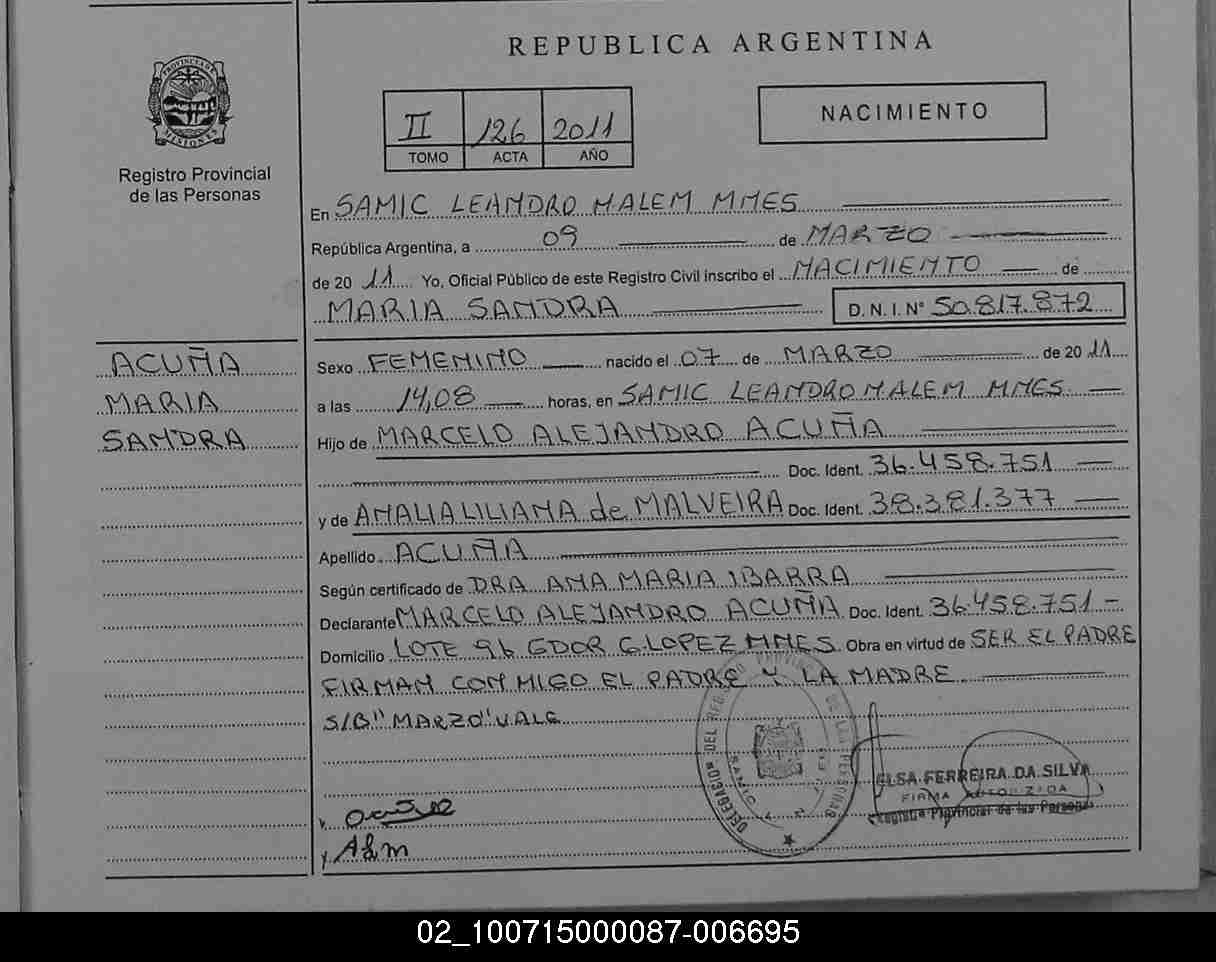 REPUBLICA ARGENTINA
PROVINCIA DE
MISIONES
Registro Provincial
de las Personas
II 126 2011
TOMO ACTA AÑO
NACIMIENTO
En SAMIC LEANDRO N ALEM MNES
República Argentina, a 09 de MARZO
de 20 11 Yo, Oficial Público de este Registro Civil inscribo el NACIMIENTO de
MARIA SANDRA D.N.I. Nº 50.817.872
ACUÑA
MARIA
SANDRA
Sexo FEMENINO nacido el 07 de MARZO de 20 11
a las 14,08 horas, en SAMIC LEANDRO N ALEM MNES
Hijo de MARCELO ALEJANDRO ACUÑA
Doc. Ident. 36.458.751
y de ANALIA LILIANA de MALVEIRA Doc. Ident. 38.381.377
Apellido ACUÑA
Según certificado de DRA ANA MARIA IBARRA
Declarante MARCELO ALEJANDRO ACUÑA Doc. Ident. 36.458.751
Domicilio LOTE 96 GDOR G. LOPEZ MNES Obra en virtud de SER EL PADRE
FIRMAN CON MIGO EL PADRE Y LA MADRE
S/B "MARZO" VALE
DELEGACION DEL REG PROVINCIAL DE LAS PERSONAS
SAMIC
ELSA FERREIRA DA SILVA
FIRMA AUTORIZADA
Registro Provincial de las Personas
Acuña
02_100715000087-006695